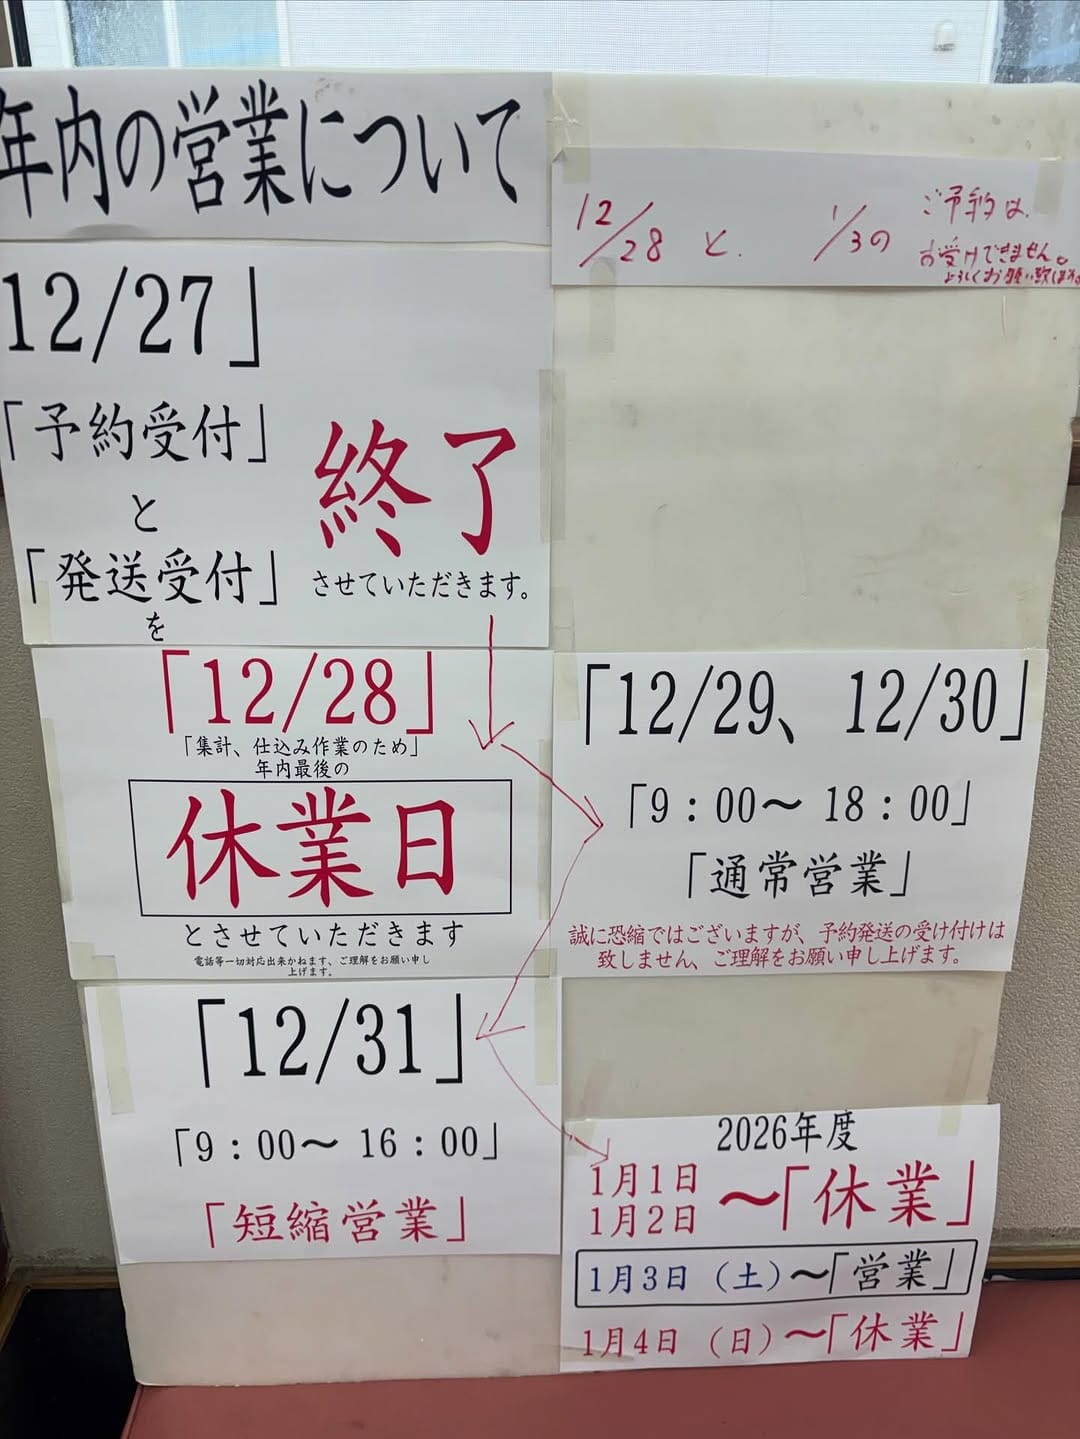 年内の営業について
12/28 と. 1/3の
ご予約は
お受けできません。
よろしくお願い致します。
12/27」
「予約受付」
と
「発送受付」
を
終了
させていただきます。
「12/28」
「集計、仕込み作業のため」
年内最後の
休業日
とさせていただきます
電話等一切対応出来かねます、ご理解をお願い申し
上げます。
「12/29、12/30」
「9：00～ 18：00」
「通常営業」
誠に恐縮ではございますが、予約発送の受け付けは
致しません、ご理解をお願い申し上げます。
「12/31」
「9：00～ 16：00」
「短縮営業」
2026年度
1月1日
1月2日 ～「休業」
1月3日（土）～「営業」
1月4日（日）～「休業」